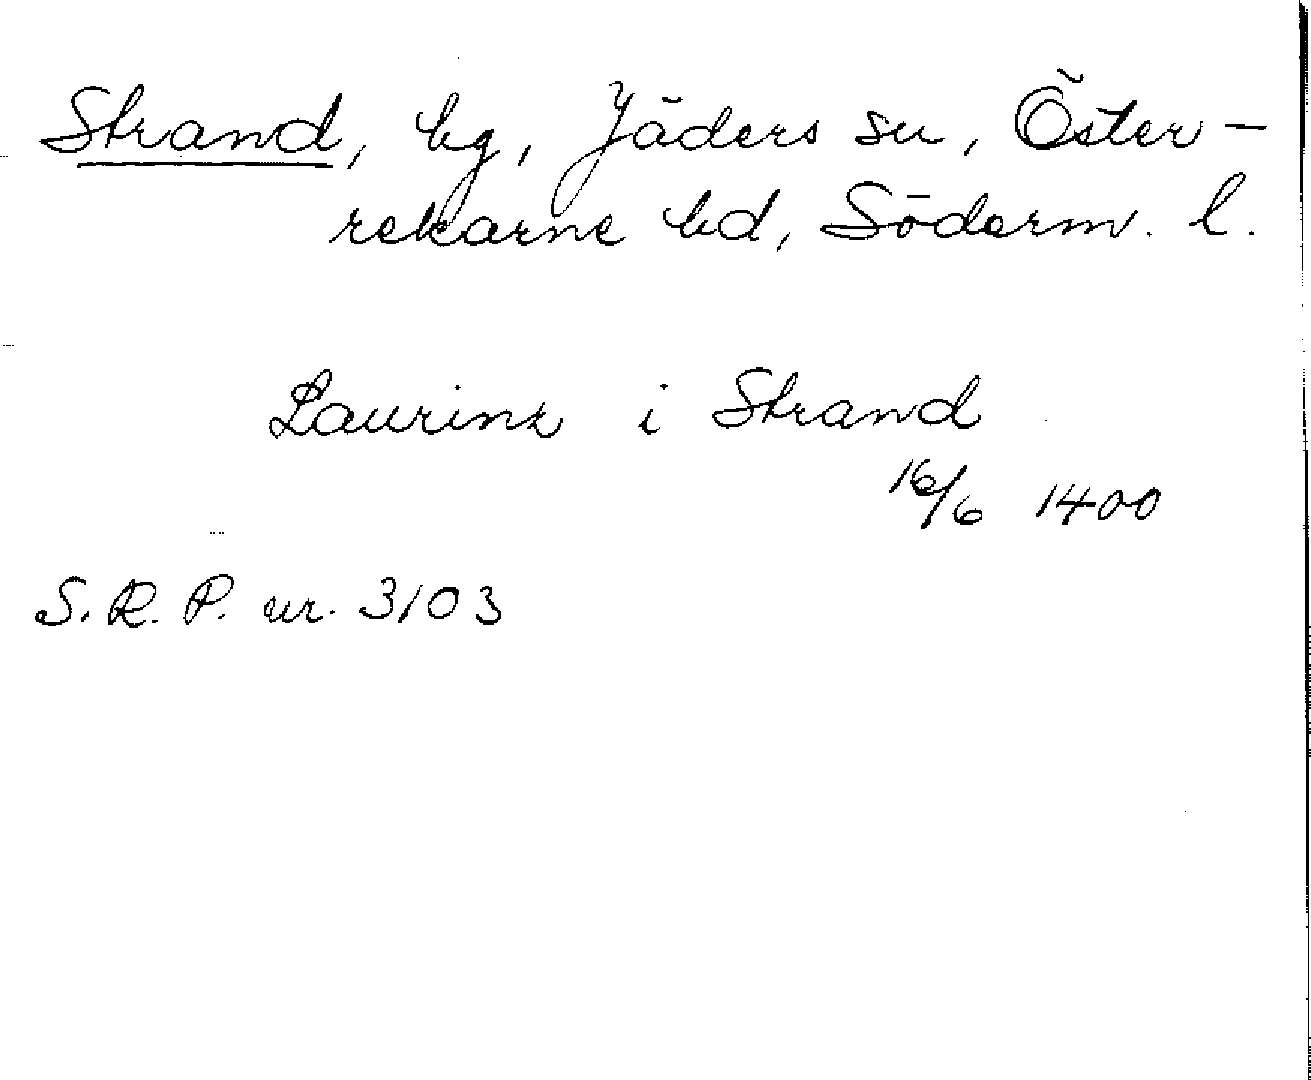 Strand, by, Jäders sn, Öster-
rekarne hd, Söderm. l.
Laurinz i Strand
16/6 1400
S.R.P. nr. 3103